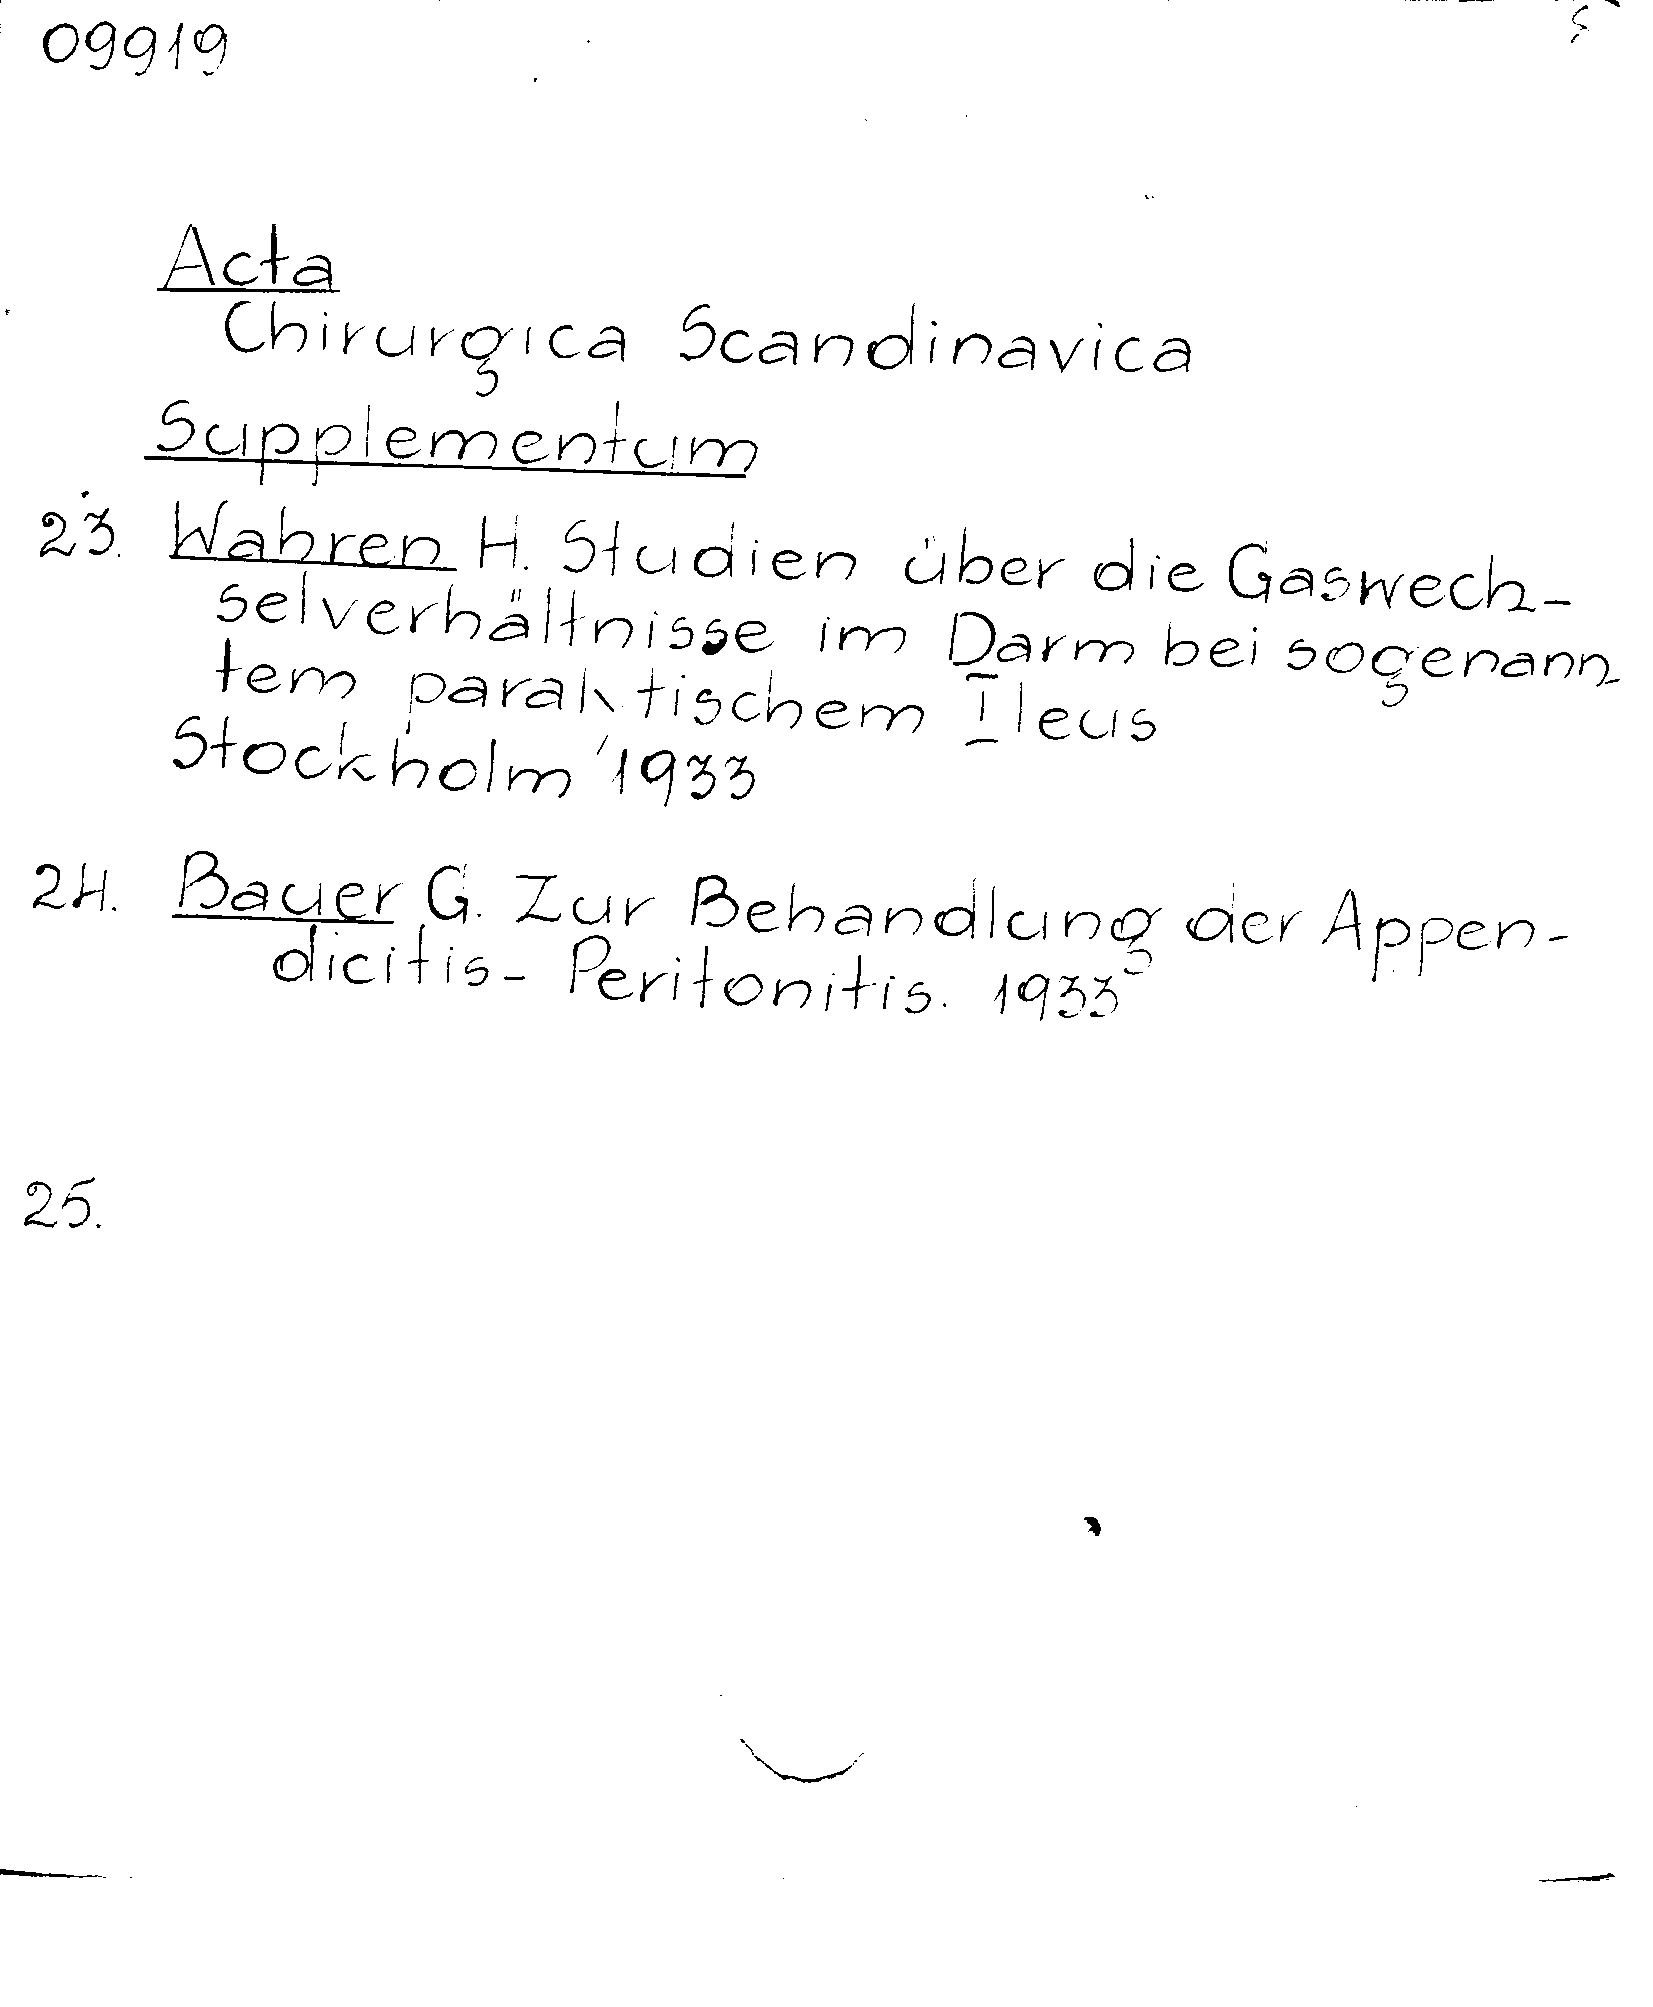 09919
Acta
Chirurgica Scandinavica
Supplementum
23. Wahren H. Studien über die Gaswech-
selverhältnisse im Darm bei sogenann-
tem paraktischem Ileus
Stockholm 1933
24. Bauer G. Zur Behandlung der Appen-
dicitis- Peritonitis. 1933
25.